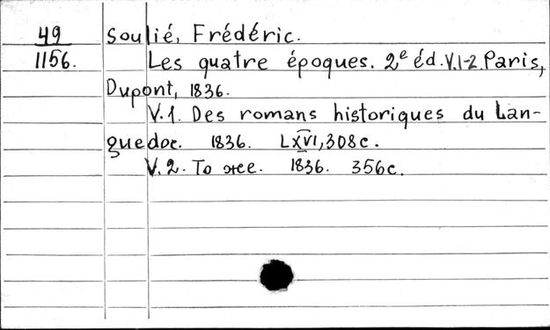 49
1156.
Soulié, Frédéric.
Les quatre époques. 2e éd. V.1-2. Paris,
Dupont, 1836.
V.1. Des romans historiques du Lan-
guedoc. 1836. LXVI, 308 с.
V.2. То же. 1836. 356 с.